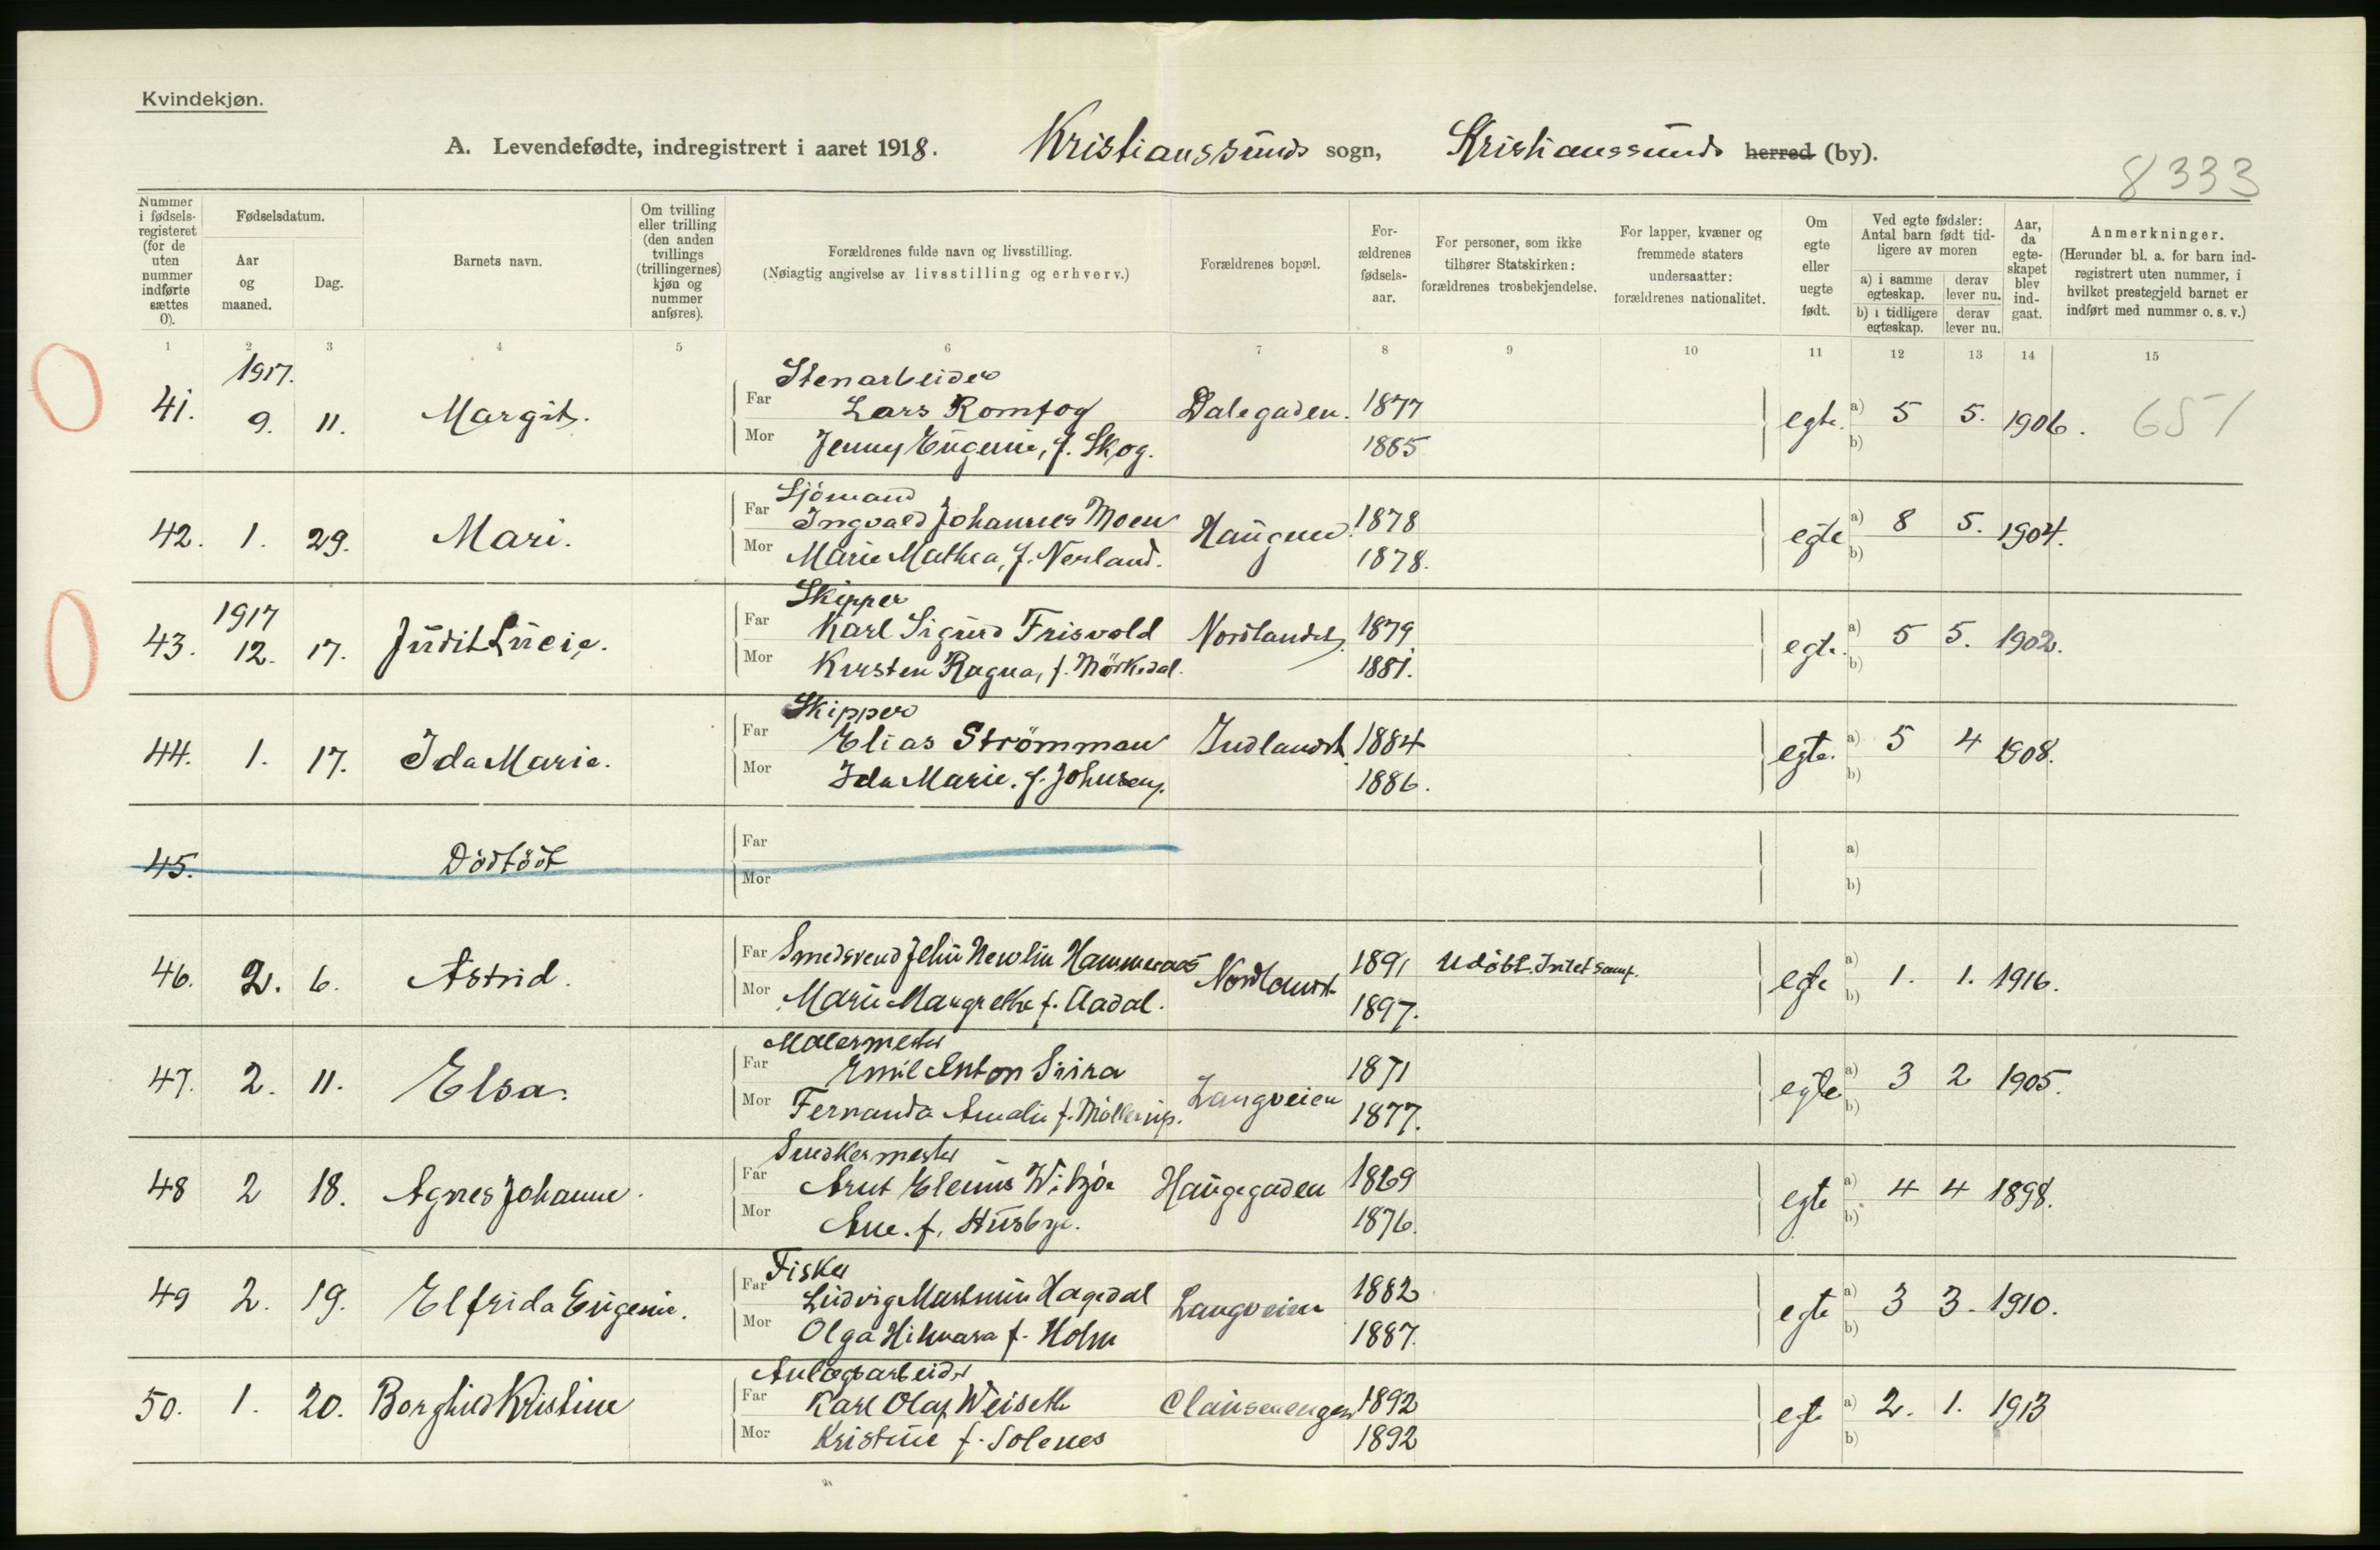 Kvindekjøn.
A. Levendefødte, indregistrert i aaret 1918. Kristianssunds sogn, Kristianssunds herred (by).
8333
Nummer i fødsels-registeret (for de uten nummer indførte sættes 0).
Fødselsdatum.
Aar og maaned.
Dag.
Barnets navn.
Om tvilling eller trilling (den anden tvillings (trillingernes) kjøn og nummer anføres).
Forældrenes fulde navn og livsstilling.
(Nøiagtig angivelse av livsstilling og erhverv.)
Forældrenes bopæl.
For-ældrenes fødsels-aar.
For personer, som ikke tilhører Statskirken: forældrenes trosbekjendelse.
For lapper, kvæner og fremmede staters undersaatter: forældrenes nationalitet.
Om egte eller uegte født.
Ved egte fødsler: Antal barn født tid-ligere av moren
a) i samme egteskap. derav lever nu.
b) i tidligere egteskap. derav lever nu.
Aar, da egte-skapet blev ind-gaat.
Anmerkninger.
(Herunder bl. a. for barn ind-registrert uten nummer, i hvilket prestegjeld barnet er indført med nummer o. s. v.)
1 2 3 4 5 6 7 8 9 10 11 12 13 14 15
1917. Stenarbeider
41. 9. 11. Margit. Far Lars Romfog Dalegaden. 1877 egte. a) 5 5. 1906. 651
Mor Jenny Eugenie, f. Skog. 1885 b)
Sjömand
42. 1. 29. Mari. Far Ingvald Johannes Moen Haugen. 1878 egte a) 8 5. 1904.
Mor Marie Mathea, f. Nerland. 1878. b)
1917 Skipper
43. 12. 17. Judit Lucie. Far Karl Sigurd Frisvold Nordlandet 1879 egte. a) 5 5. 1902.
Mor Kirsten Ragna, f. Mörkedal. 1881. b)
Skipper
44. 1. 17. Ida Marie. Far Elias Strömman Indlandet 1884 egte. a) 5 4 1908.
Mor Ida Marie. f. Johnsen. 1886. b)
45. Dödfödt Far a)
Mor b)
46. 2. 6. Astrid. Far Smedsvend John Hammeraas Nordlandt 1891 Udöbt. Intet samf. egte a) 1. 1. 1916.
Mor Marie Margrethe f. Aadal. 1897. b)
Malermester
47. 2. 11. Elsa. Far Emil Anton Langveien 1871 egte a) 3 2 1905.
Mor Fernanda Amalie f. Möllerup. 1877. b)
Snedkermester
48 2 18. Agnes Johanne. Far Arnt Elenus Witzöe Haugegaden 1869 egte a) 4 4 1898.
Mor Ane. f. Husbye. 1876. b)
Fisker
49 2. 19. Elfrida Eugenie. Far Ludvig Hagedal Langveien 1882 egte a) 3 3. 1910.
Mor Olga Hilmara f. Holm 1887. b)
Anlægsarbeider
50. 1. 20. Borghild Kristine Far Karl Olaf Weiseth Clausenengen 1892 egte a) 2. 1. 1913
Mor Kristine f. Solenes 1892 b)